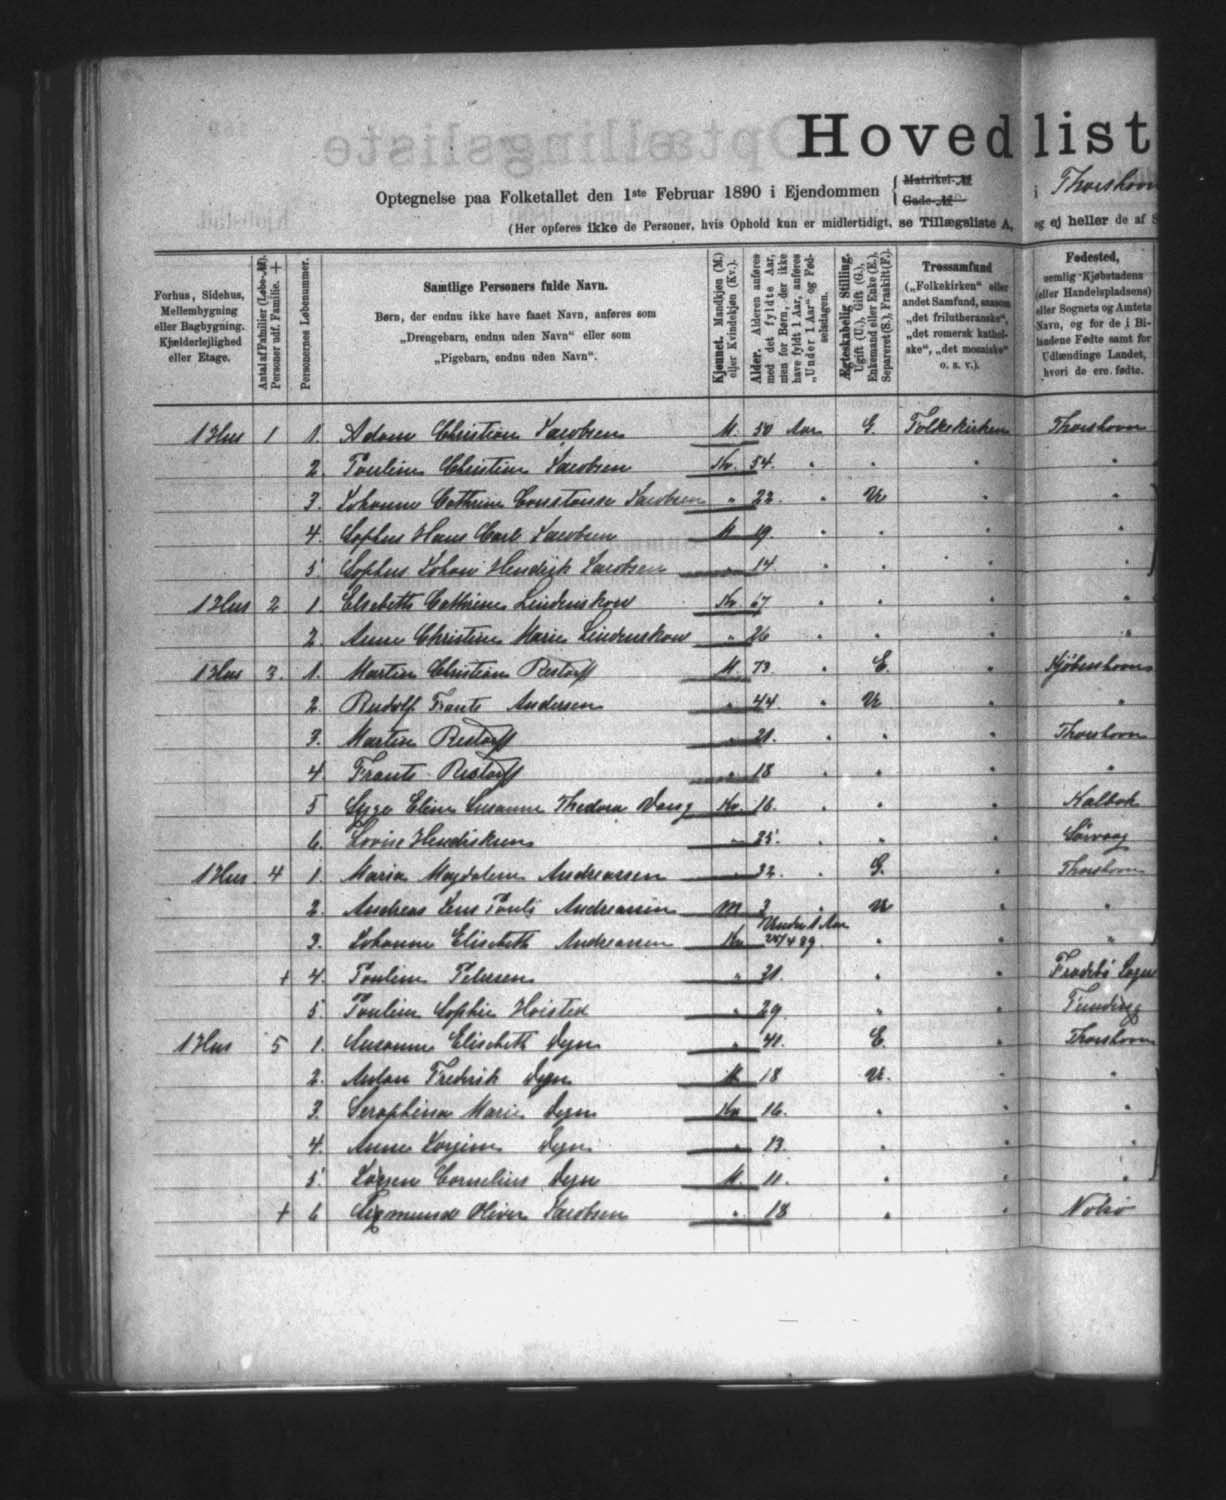 Hovedlist
Optegnelse paa Folketallet den 1ste Februar 1890 i Ejendommen { Matrikel-№ Gade-№ i Thorshavn
(Her opføres ikke de Personer, hvis Ophold kun er midlertidigt, se Tillægsliste A, og ej heller de af
Forhus, Sidehus, Mellembygning eller Bagbygning. Kjælderlejlighed eller Etage.
Antal af Familier (Løbe-№). Personer udf. Familie. +
Personernes Løbenummer.
Samtlige Personers fulde Navn.
Børn, der endnu ikke have faaet Navn, anføres som
„Drengebarn, endnu uden Navn“ eller som
„Pigebarn, endnu uden Navn“.
Kjønnet. Mandkjøn (M.) eller Kvindekjøn (Kv.).
Alder. Alderen anføres med det fyldte Aar, men for Børn, der ikke have fyldt 1 Aar, anføres „Under 1 Aar“ og Fødselsdagen.
Ægteskabelig Stilling. Ugift (U.), Gift (G.), Enkemand eller Enke (E.), Separeret (S.), Fraskilt (F.).
Trossamfund („Folkekirken“ eller andet Samfund, saasom „det frilutheranske“, „det romersk katholske“, „det mosaiske“ o. s. v.).
Fødested, nemlig Kjøbstadens (eller Handelspladsens) eller Sognets og Amtets Navn, og for de i Bilandene Fødte samt for Udlændinge Landet, hvori de ere fødte.
1 Hus 1 1. Adam Christian Jacobsen M. 50 Aar G. Folkekirken Thorshavn
2. Pouline Christine Jacobsen Kv. 54. " " " "
3. Johanne Cathrine Constanse Jacobsen " 22. " U " "
4. Sophus Hans Carl Jacobsen M 19. " " " "
5 Sophus Johan Hendrik Jacobsen " 14 " " " "
1 Hus 2 1. Elsebeth Cathrine Lindenskov Kv. 67 " " " "
2. Anne Christine Marie Lindenskov " 26 " " " "
1 Hus 3. 1. Martin Christian Restorff M. 73. " E. " Kjøbenhavn
2. Rudolf Frants Andersen " 44. " U " "
3. Martin Restorff " 21. " " " Thorshavn
4. Frants Restorff " 18 " " " "
5 Eline Susanne Thedora Kv. 16. " " "
6. Lovise Hendriksen " 25. " " " Sørvaag
1 Hus. 4 1. Maria Magdalene Andreasen " 32. " G. " Thorshavn
2. Andreas Jens Pouli Andreasen M 3 " U " "
3. Johanne Elisebeth Andreasen Kv Under 1 Aar 24/4 89. " " "
+ 4. Pouline Petersen " 21. " " Sogn
5. Pouline Sophie Hoisted " 29 " " Funding
1 Hus 5 1. Susanne Elisebeth Djn " 41. E. " Thorshavn
2. Anton Fredrik M 18 U. " "
3. Seraphina Marie Kv 16. " " "
4. Anne " 13. " "
5. Cornelius M. 11. " " "
+ 6 Sigmund Oliver Jacobsen " 18 " " Nolsø